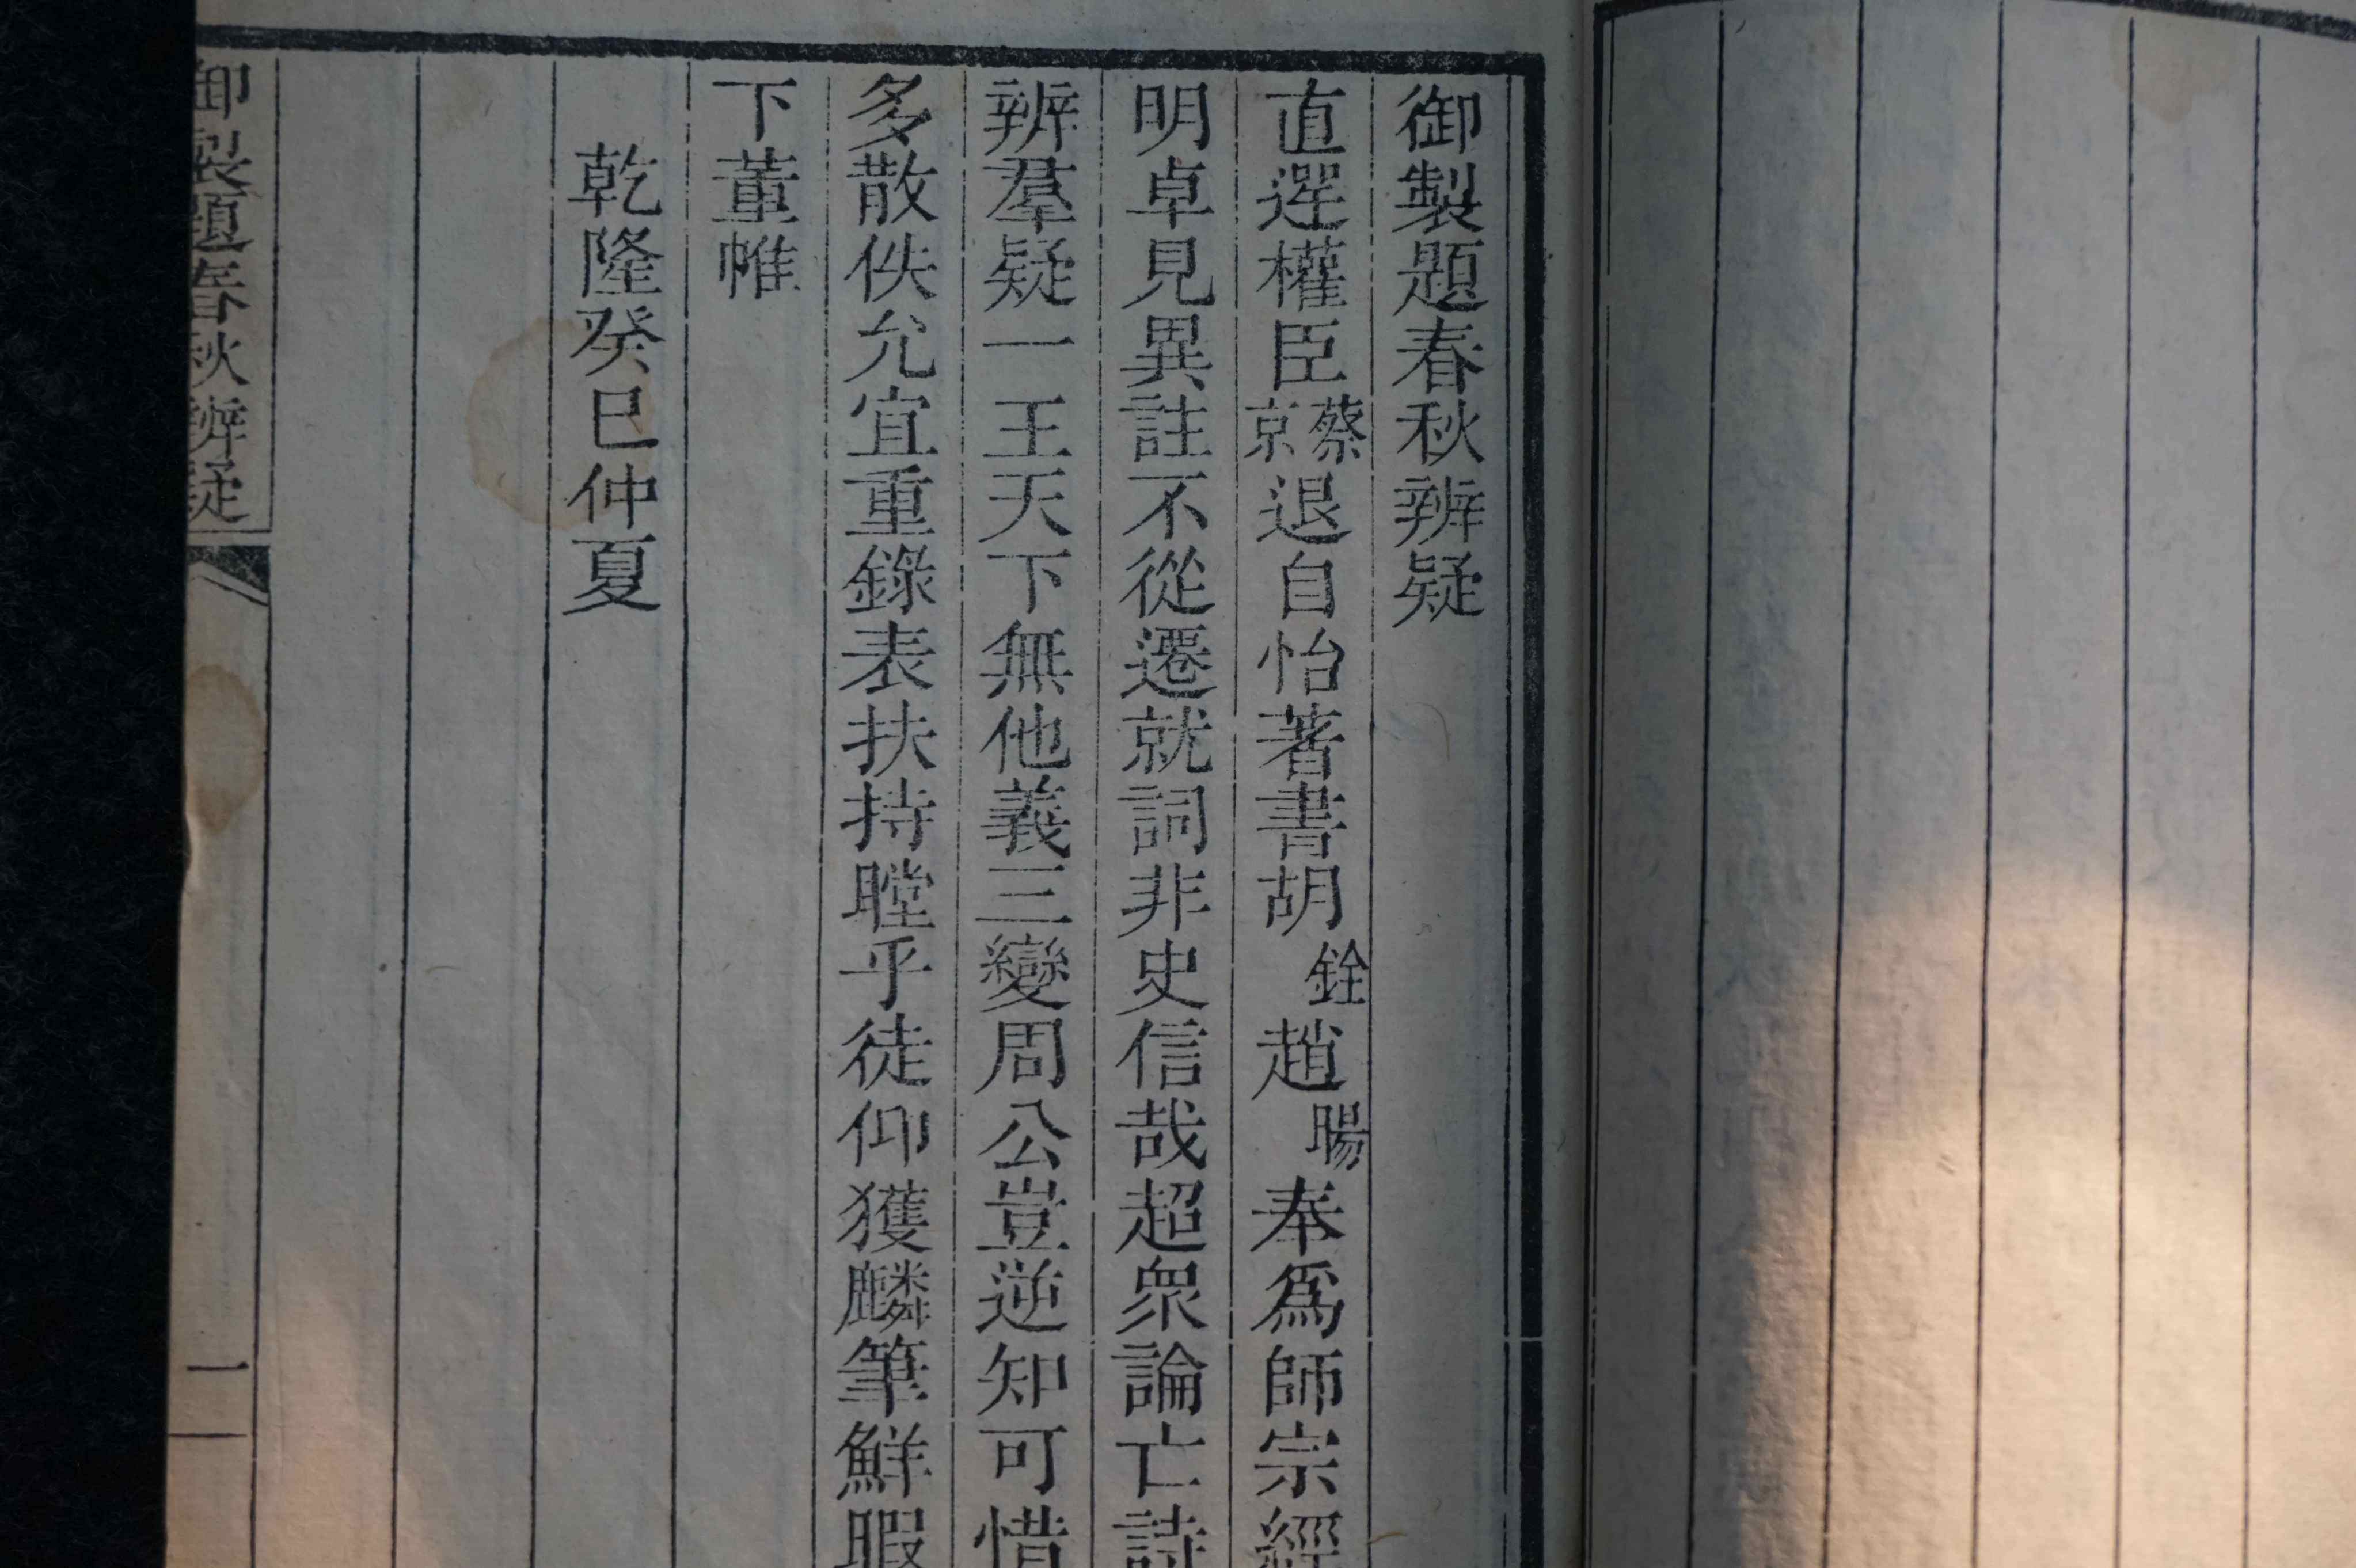 御製題春秋辨疑
直遻權臣蔡京退自怡著書胡銓趙暘奉爲師宗經
明卓見異註不從遷就詞非史信哉超衆論亡詩
辨羣疑一王天下無他義三變周公豈逆知可惜
多散佚允宜重錄表扶持瞠乎徒仰獲麟筆鮮暇
下董帷
乾隆癸巳仲夏
御製題春秋辨疑
一